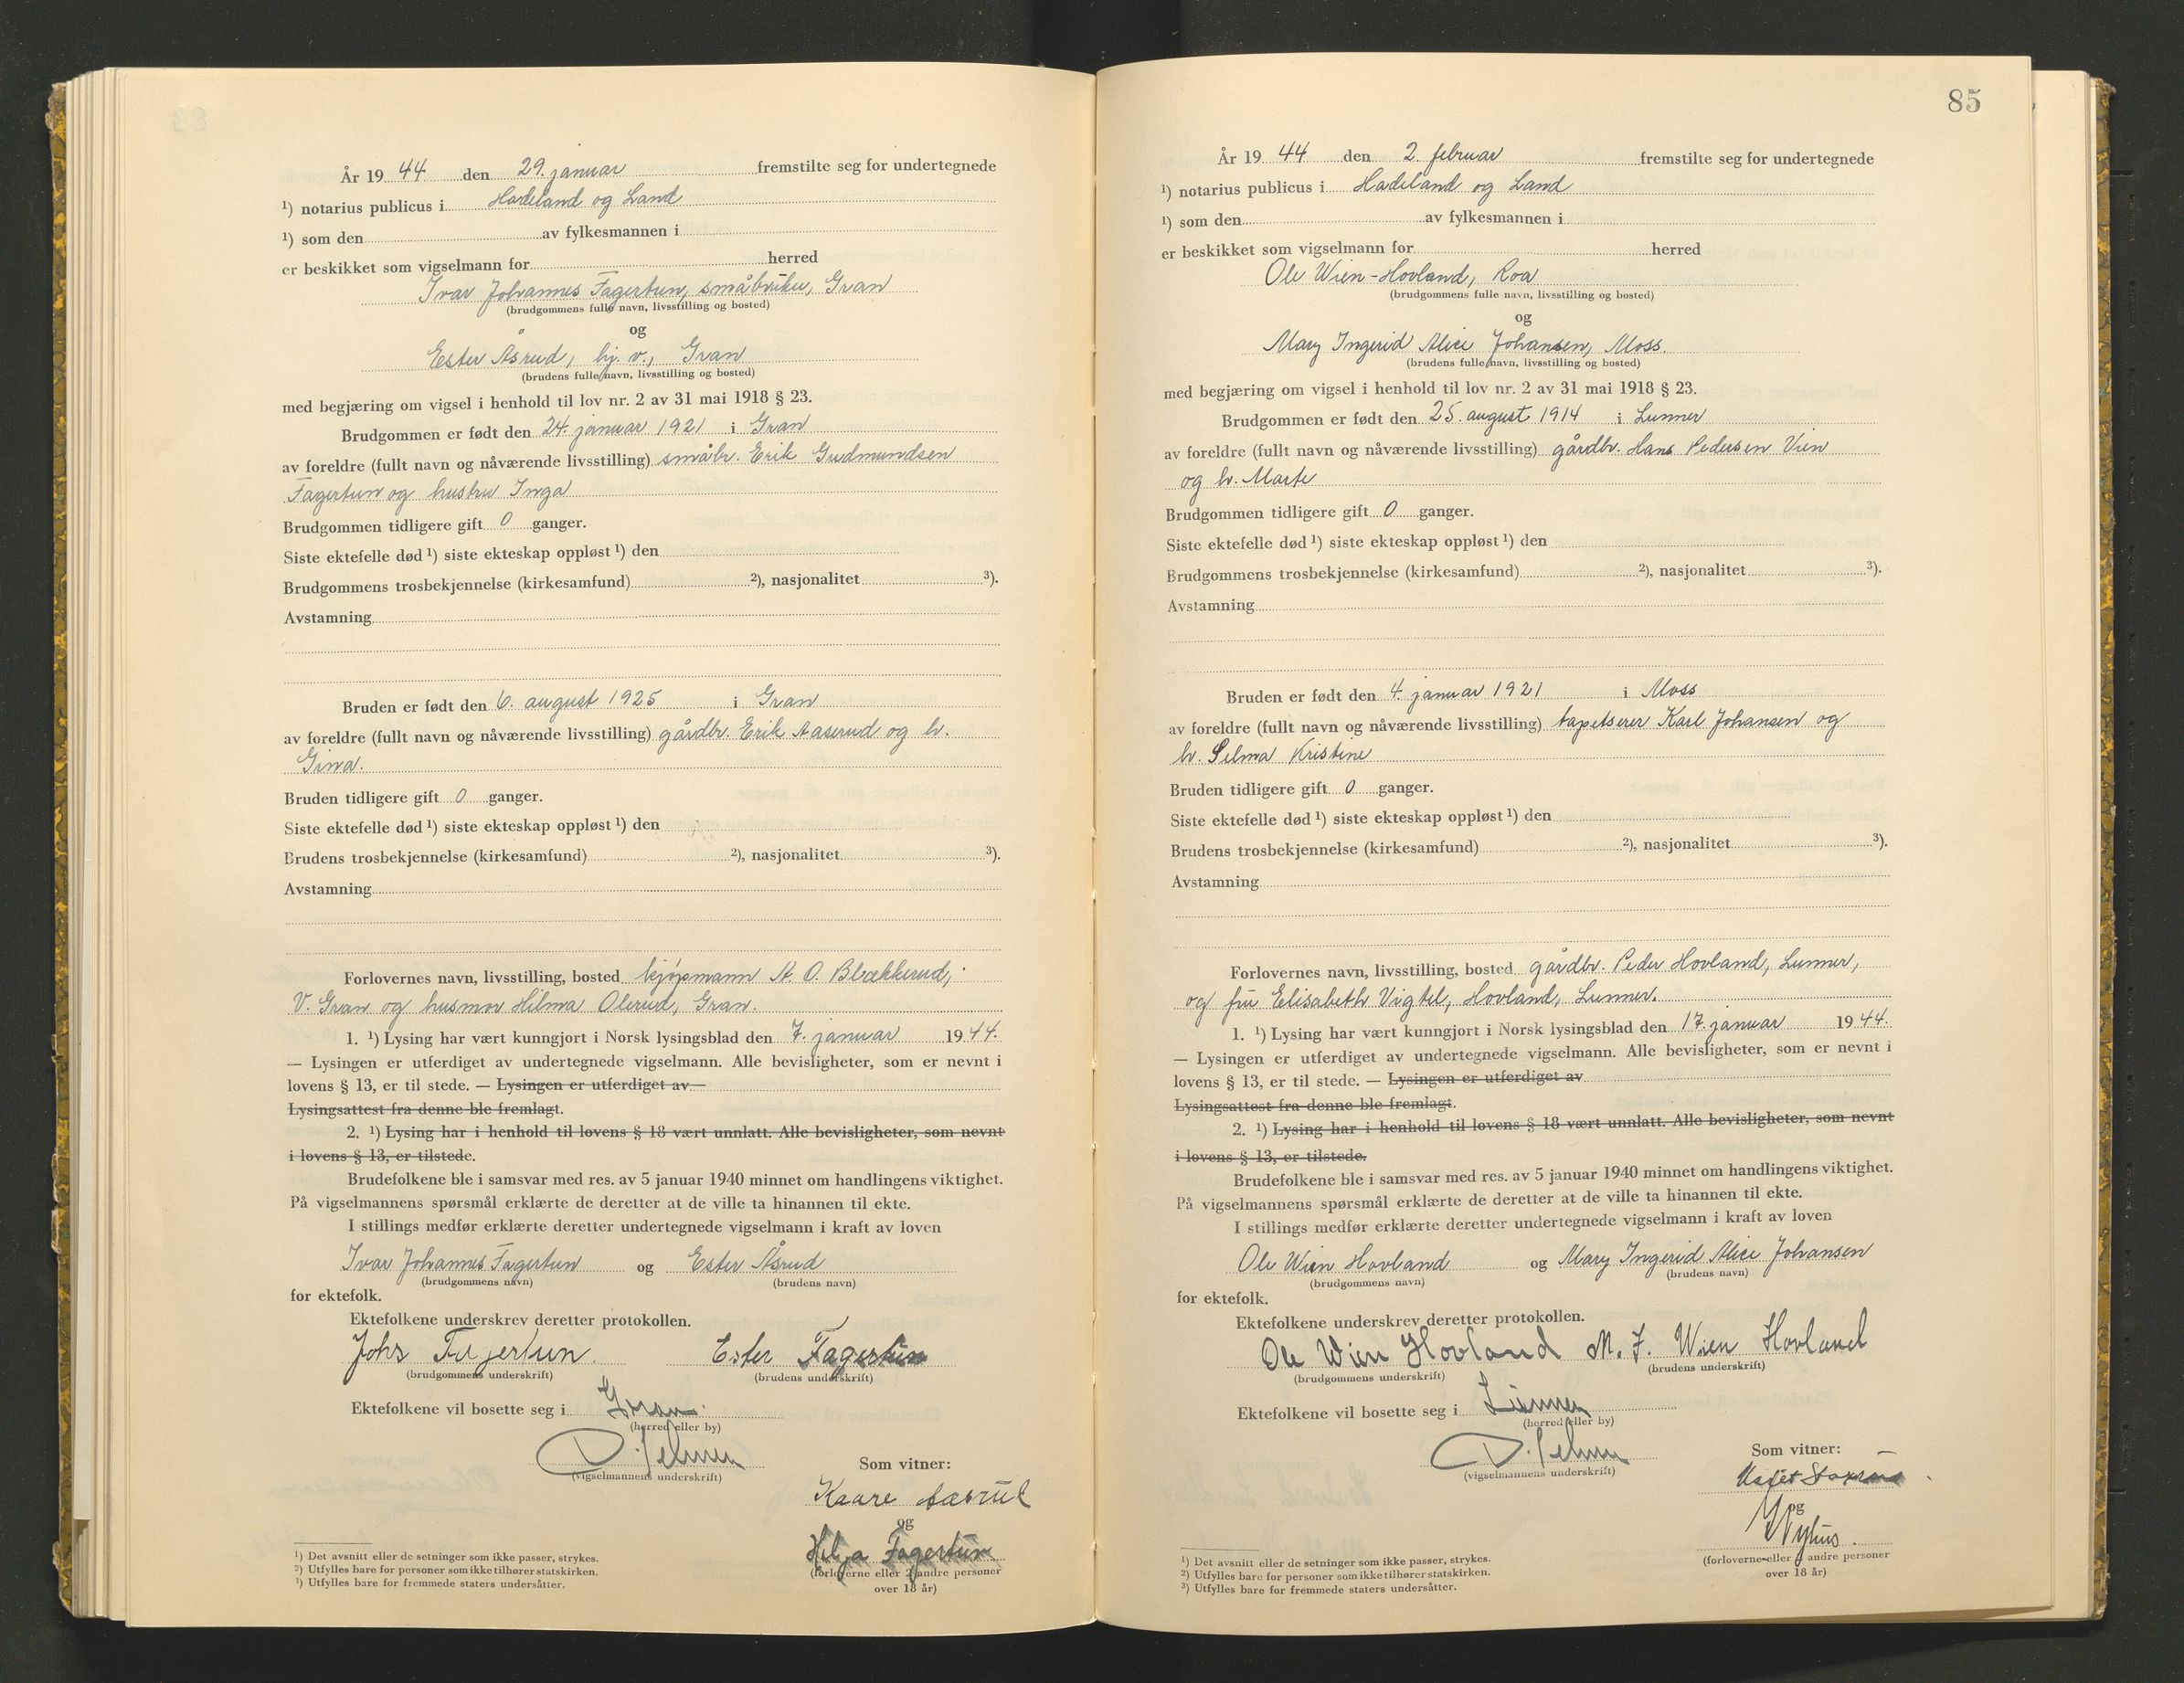 År 19 44 den 29. januar fremstilte seg for undertegnede
¹) notarius publicus i Hadeland og Land
¹) som den av fylkesmannen i
er beskikket som vigselmann for herred
Ivar Johannes Fagertun, småbruker, Gran
(brudgommens fulle navn, livsstilling og bosted)
og
Ester Åsrud, hj. v., Gran
(brudens fulle navn, livsstilling og bosted)
med begjæring om vigsel i henhold til lov nr. 2 av 31 mai 1918 § 23.
Brudgommen er født den 24. januar 1921 i Gran
av foreldre (fullt navn og nåværende livsstilling) småbr. Erik Gudmundsen
Fagertun og hustru Inga
Brudgommen tidligere gift 0 ganger.
Siste ektefelle død ¹) siste ekteskap oppløst ¹) den
Brudgommens trosbekjennelse (kirkesamfund) ²), nasjonalitet ³).
Avstamning
Bruden er født den 6. august 1925 i Gran
av foreldre (fullt navn og nåværende livsstilling) gårdbr. Erik Aaserud og h.
Gina.
Bruden tidligere gift 0 ganger.
Siste ektefelle død ¹) siste ekteskap oppløst ¹) den
Brudens trosbekjennelse (kirkesamfund) ²), nasjonalitet ³).
Avstamning
Forlovernes navn, livsstilling, bosted kjøpmann A. O. Blækkerud,
V. Gran og husmor Hilma Olerud, Gran.
1. ¹) Lysing har vært kunngjort i Norsk lysingsblad den 7. januar 19 44.
— Lysingen er utferdiget av undertegnede vigselmann. Alle bevisligheter, som er nevnt i
lovens § 13, er til stede. — Lysingen er utferdiget av
Lysingsattest fra denne ble fremlagt.
2. ¹) Lysing har i henhold til lovens § 18 vært unnlatt. Alle bevisligheter, som nevnt
i lovens § 13, er tilstede.
Brudefolkene ble i samsvar med res. av 5 januar 1940 minnet om handlingens viktighet.
På vigselmannens spørsmål erklærte de deretter at de ville ta hinannen til ekte.
I stillings medfør erklærte deretter undertegnede vigselmann i kraft av loven
Ivar Johannes Fagertun og Ester Åsrud
(brudgommens navn) (brudens navn)
for ektefolk.
Ektefolkene underskrev deretter protokollen.
Johs Fagertun. Ester Fagertun
(brudgommens underskrift) (brudens underskrift)
Ektefolkene vil bosette seg i Gran.
(herred eller by)
(vigselmannens underskrift)
Som vitner:
Kaare Aasrud
og
Helga Fagertun
(forloverne eller 2 andre personer
over 18 år)
¹) Det avsnitt eller de setninger som ikke passer, strykes.
²) Utfylles bare for personer som ikke tilhører statskirken.
³) Utfylles bare for fremmede staters undersåtter.
85
År 19 44 den 2. februar fremstilte seg for undertegnede
¹) notarius publicus i Hadeland og Land
¹) som den av fylkesmannen i
er beskikket som vigselmann for herred
Ole Wien-Hovland, Roa
(brudgommens fulle navn, livsstilling og bosted)
og
Mary Ingerid Alice Johansen, Moss.
(brudens fulle navn, livsstilling og bosted)
med begjæring om vigsel i henhold til lov nr. 2 av 31 mai 1918 § 23.
Brudgommen er født den 25. august 1914 i Lunner
av foreldre (fullt navn og nåværende livsstilling) gårdbr. Hans Pedersen Vien
og h. Marte
Brudgommen tidligere gift 0 ganger.
Siste ektefelle død ¹) siste ekteskap oppløst ¹) den
Brudgommens trosbekjennelse (kirkesamfund) ²), nasjonalitet ³).
Avstamning
Bruden er født den 4. januar 1921 i Moss
av foreldre (fullt navn og nåværende livsstilling) tapetserer Karl Johansen og
h. Selma Kristine
Bruden tidligere gift 0 ganger.
Siste ektefelle død ¹) siste ekteskap oppløst ¹) den
Brudens trosbekjennelse (kirkesamfund) ²), nasjonalitet ³).
Avstamning
Forlovernes navn, livsstilling, bosted gårdbr. Peder Hovland, Lunner,
og fru Elisabeth Vigtel, Hovland, Lunner.
1. ¹) Lysing har vært kunngjort i Norsk lysingsblad den 17. januar 19 44.
— Lysingen er utferdiget av undertegnede vigselmann. Alle bevisligheter, som er nevnt i
lovens § 13, er til stede. — Lysingen er utferdiget av
Lysingsattest fra denne ble fremlagt.
2. ¹) Lysing har i henhold til lovens § 18 vært unnlatt. Alle bevisligheter, som nevnt
i lovens § 13, er tilstede.
Brudefolkene ble i samsvar med res. av 5 januar 1940 minnet om handlingens viktighet.
På vigselmannens spørsmål erklærte de deretter at de ville ta hinannen til ekte.
I stillings medfør erklærte deretter undertegnede vigselmann i kraft av loven
Ole Wien Hovland og Mary Ingerid Alice Johansen
(brudgommens navn) (brudens navn)
for ektefolk.
Ektefolkene underskrev deretter protokollen.
Ole Wien Hovland M. J. Wien Hovland
(brudgommens underskrift) (brudens underskrift)
Ektefolkene vil bosette seg i Lunner
(herred eller by)
(vigselmannens underskrift)
Som vitner:
og
(forloverne eller 2 andre personer
over 18 år)
¹) Det avsnitt eller de setninger som ikke passer, strykes.
²) Utfylles bare for personer som ikke tilhører statskirken.
³) Utfylles bare for fremmede staters undersåtter.